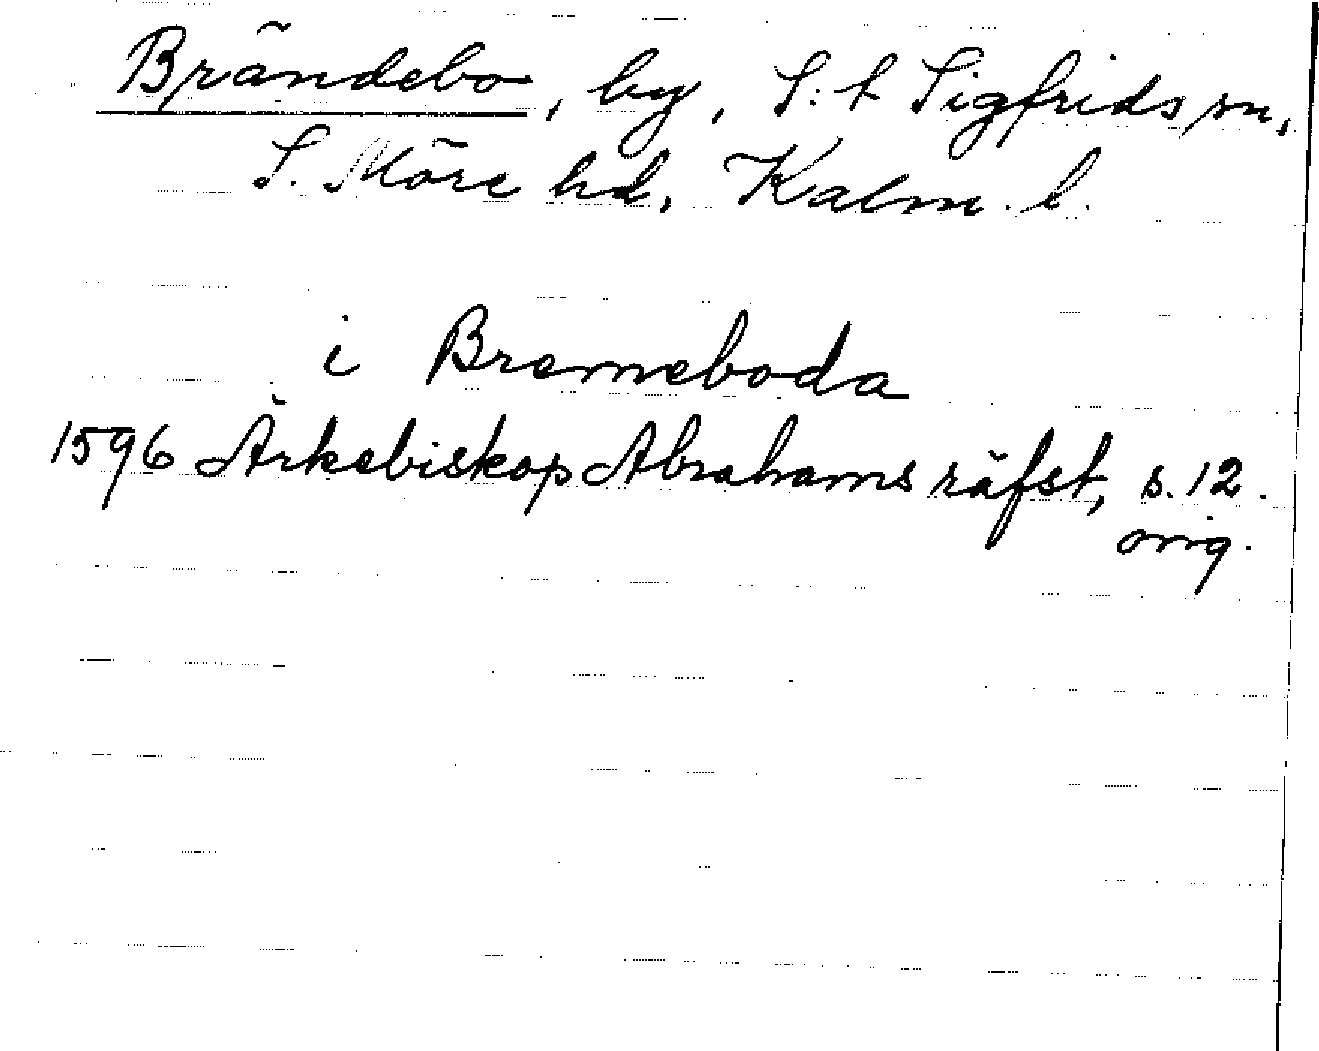 Brändebo, by, S:t Sigfrids sn,
S. Möre hd, Kalm. l.
i Bremeboda
1596 Ärkebiskop Abrahams räfst, s. 12.
orig.